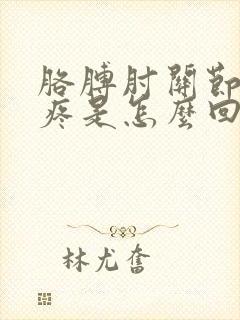 胳膊肘關節
疼是怎麼回
林尤奮